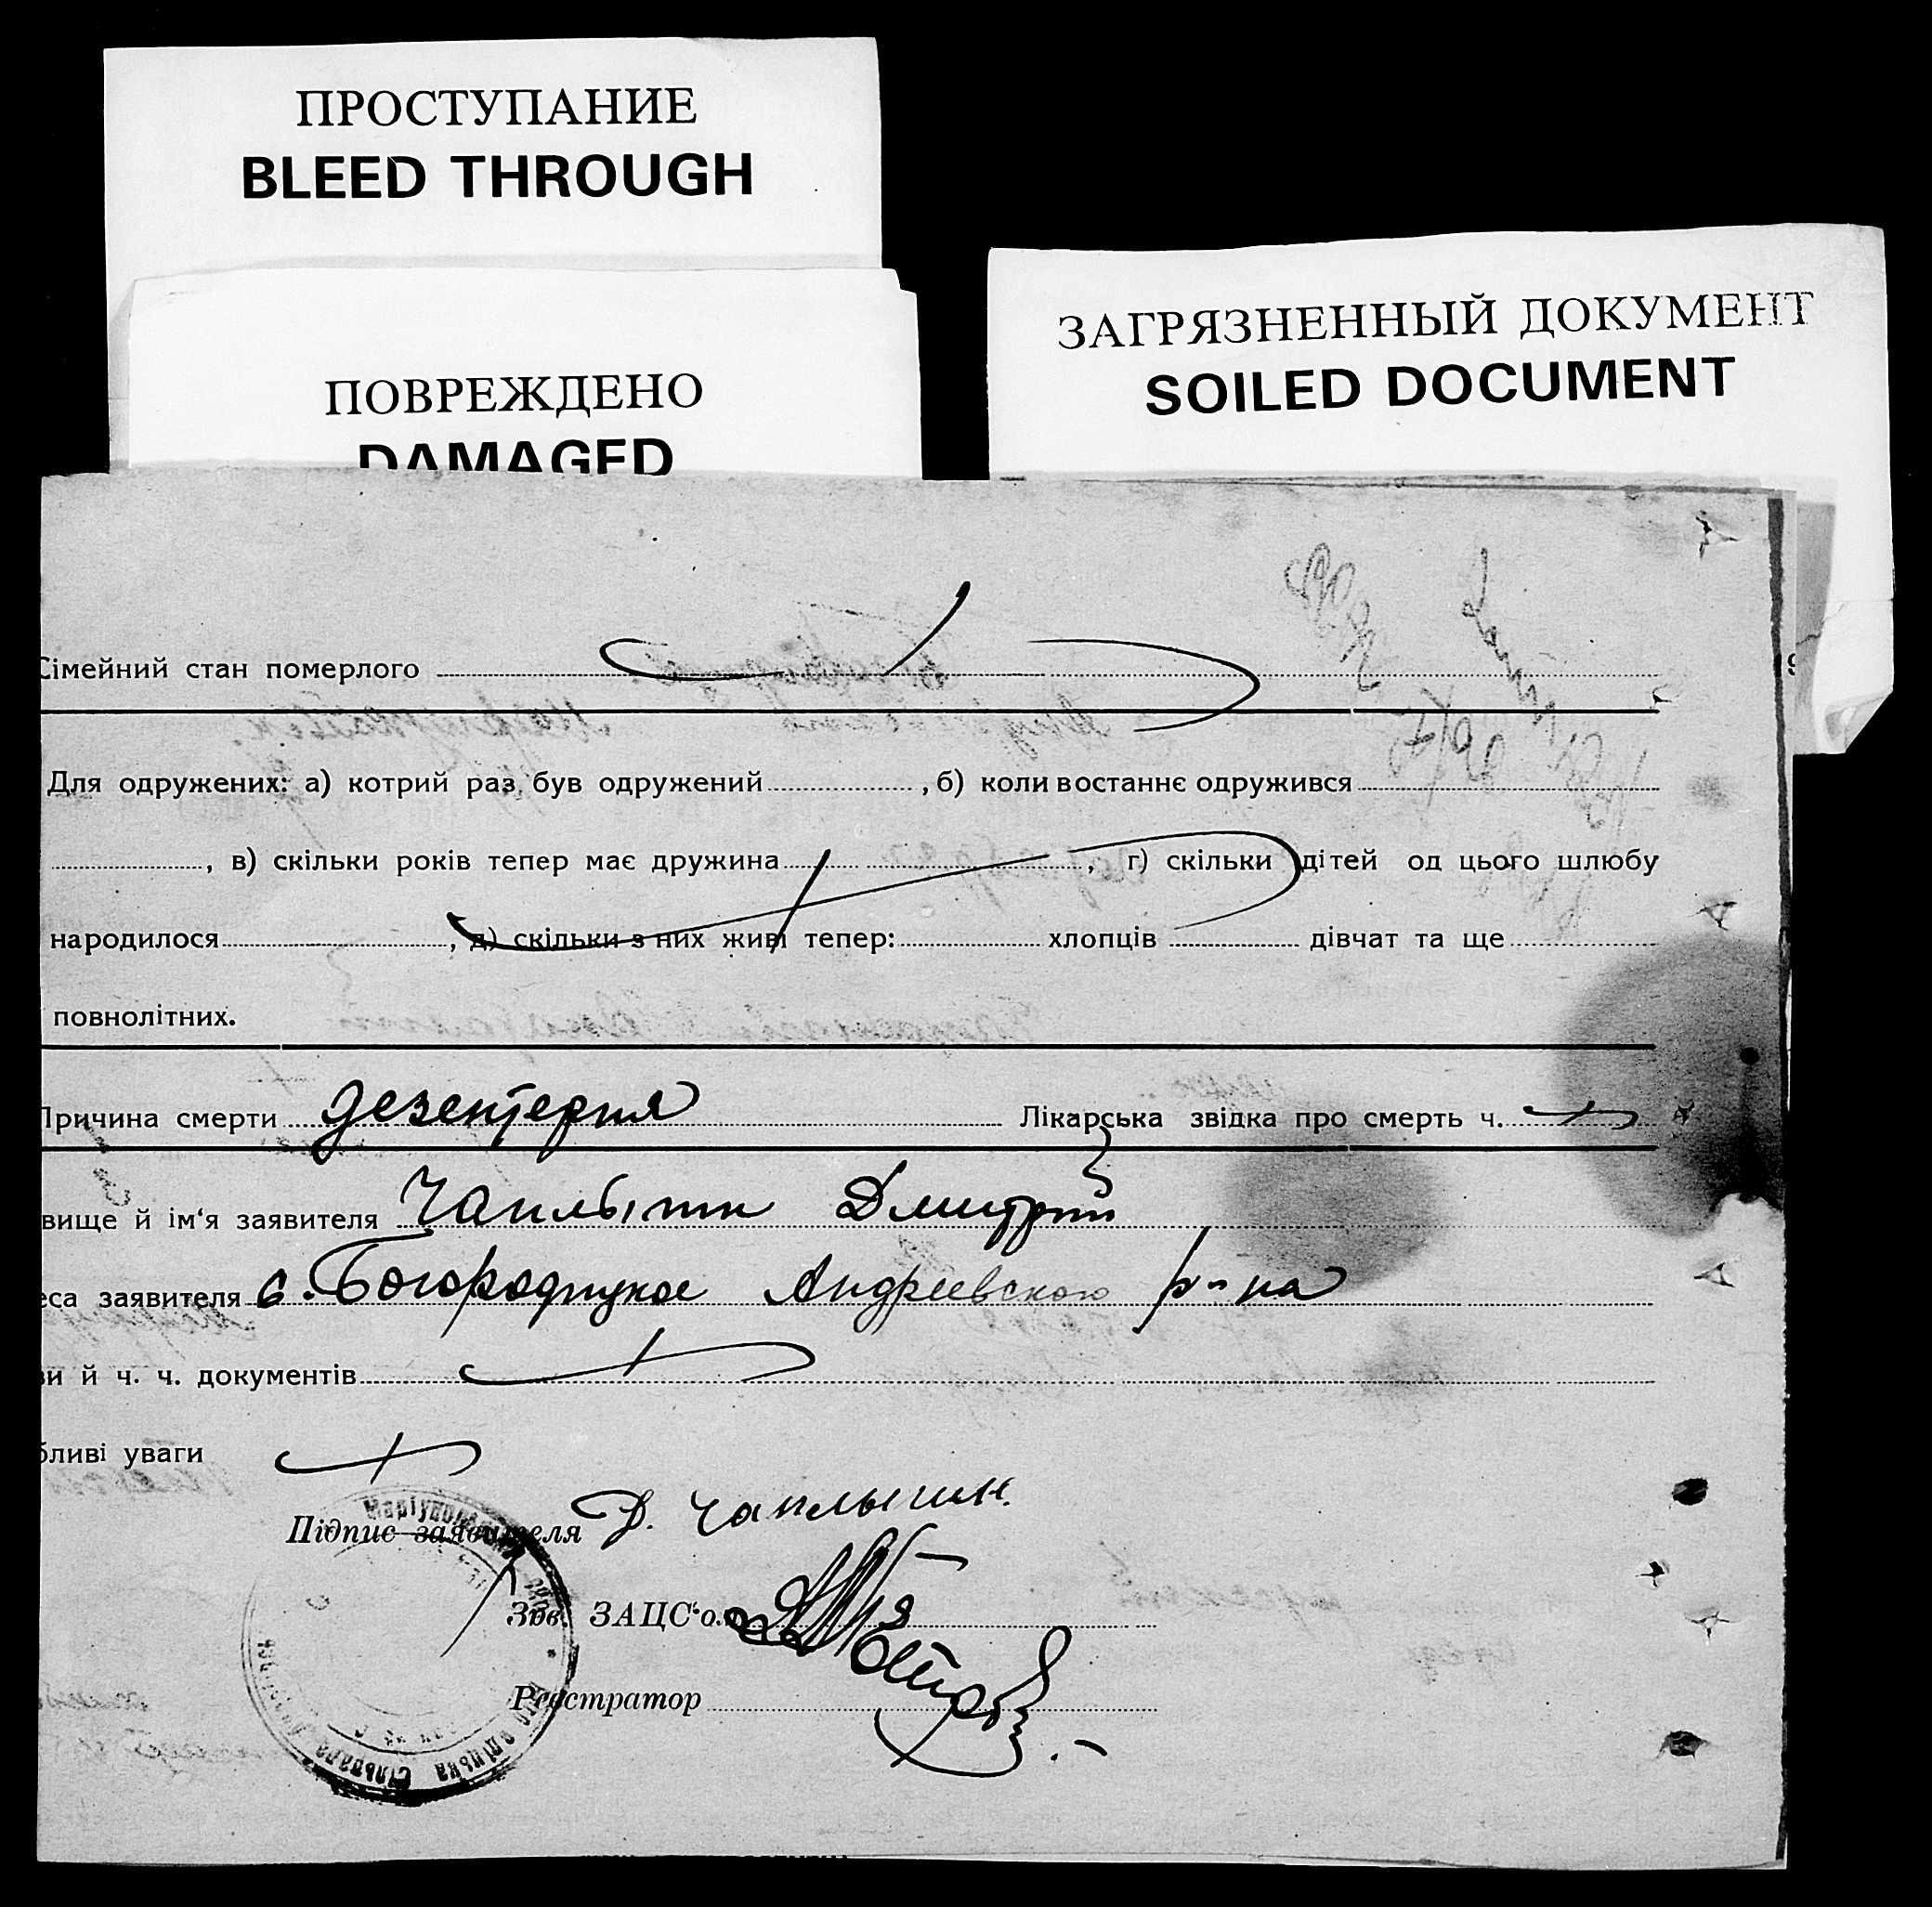 ПРОСТУПАНИЕ
BLEED THROUGH
ПОВРЕЖДЕНО
DAMAGED
ЗАГРЯЗНЕННЫЙ ДОКУМЕНТ
SOILED DOCUMENT
Сімейний стан померлого
Для одружених: а) котрий раз був одружений , б) коли востаннє одружився
, в) скільки років тепер має дружина , г) скільки дітей од цього шлюбу
народилося , д) скільки з них живі тепер: хлопців дівчат та ще
повнолітних.
Причина смерти дезентерия Лікарська звідка про смерть ч.
вище й ім‘я заявителя Чаплыгин Дмитрий
еса заявителя с. Богородицкое Андреевского р-на
ви й ч. ч. документів
бливі уваги
Підпис заявителя Д. Чаплыгин.
Зав. ЗАЦС‘ом
Реєстратор
Сільрада